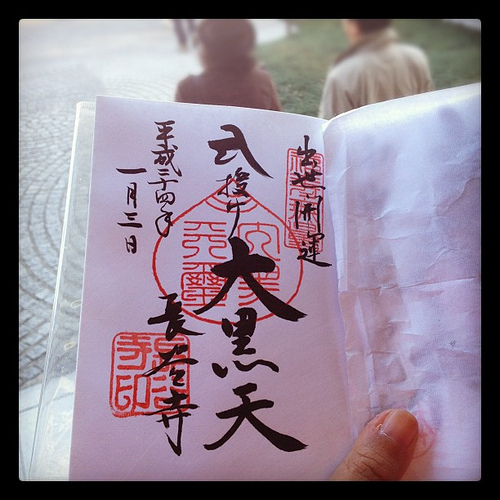 出世開運
授け大黒天
平成二十四年
一月三日
長谷寺